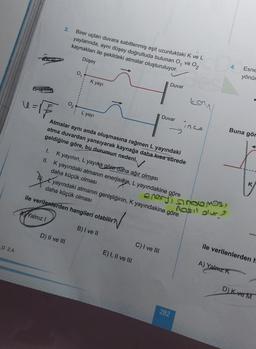 2. Birer uçları duvara sabitlenmiş eşit uzunluktaki K ve L
yaylarında, aynı düşey doğrultuda bulunan O₁ ve O₂
kaynakları ile şekildeki atmalar oluşturuluyor.
Düşey
O₁
Duvar
K yayı
O₂
Duvar
L yayı
ince
Atmalar aynı anda oluşmasına rağmen L yayındaki
atma duvardan yansıyarak kaynağa daha kısa sürede
geldiğine göre, bu durumun nedeni,
I. K yayının, L yayına göre daha ağır olması
II. K yayındaki atmanın enerjisinin, L yayındakine göre
daha küçük olması
K yayındaki atmanın genişliğinin, L yayındakine göre
daha küçük olması
ile verilenlerden hangileri olabilir?
A) Yalnız I
B) I ve II
C) I ve III
D) II ve III
E) I, II ve III
282
4. Esne
yönü
Buna gör
K
ile verilenlerden h
A) Yalnız K
D) K ve M